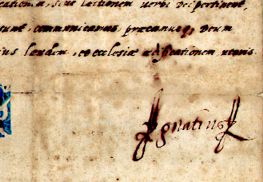 sive lectionem verbi Dei pertinent,
sunt, communicamus, precamurq; Deum
ius laudem, et ecclesiæ ædificationem
Ignatius